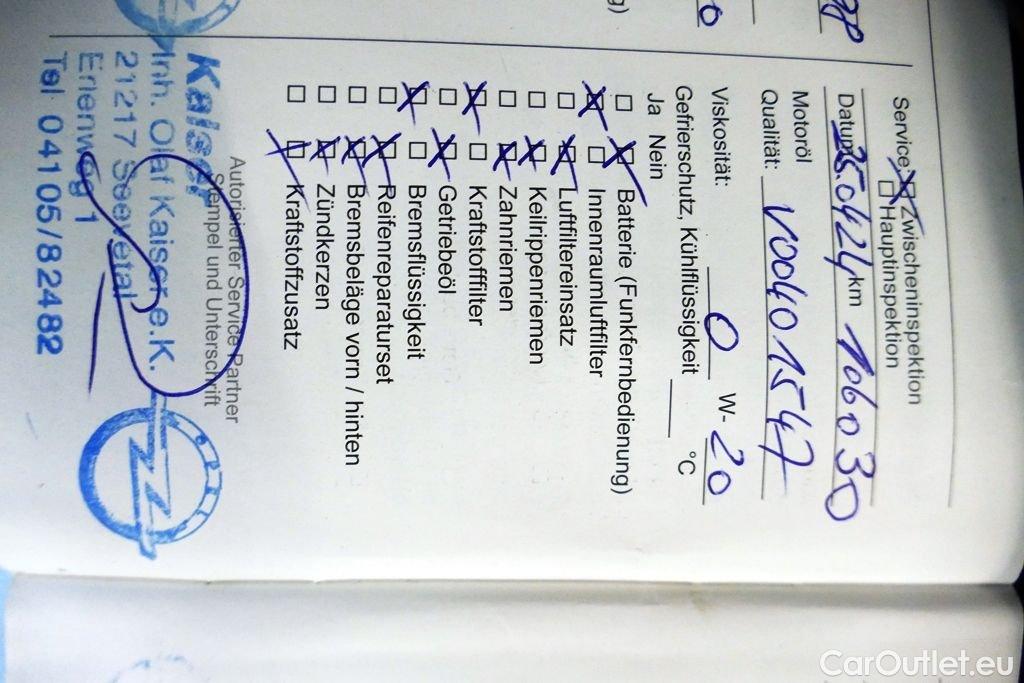 Service: Zwischeninspektion
Hauptinspektion
Datum 25.04.24 km 106030
Motoröl
Qualität: V00401547
Viskosität: 0 W- 20
Gefrierschutz, Kühlflüssigkeit °C
Ja Nein
Batterie (Funkfernbedienung)
Innenraumluftfilter
Luftfiltereinsatz
Keilrippenriemen
Zahnriemen
Kraftstofffilter
Getriebeöl
Bremsflüssigkeit
Reifenreparaturset
Bremsbeläge vorn / hinten
Zündkerzen
Kraftstoffzusatz
Autorisierter Service Partner
Stempel und Unterschrift
Kaiser
Inh. Olaf Kaiser e.K.
21217 Seevetal
Erlenweg 1
Tel 04105/82482
CarOutlet.eu